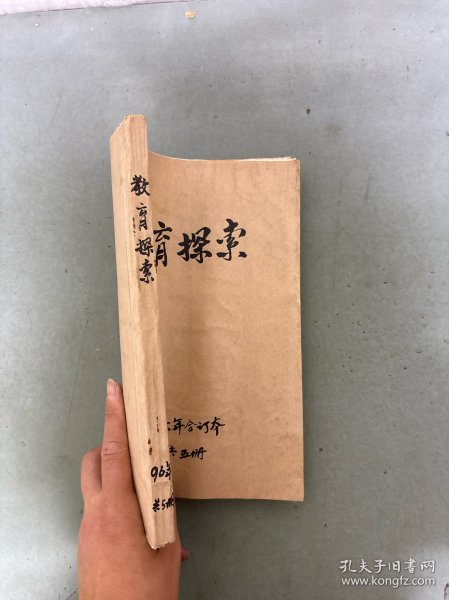 教育探索
96年
共5册
育探索
六年合订本
共五册
孔夫子旧书网
www.kongfz.com